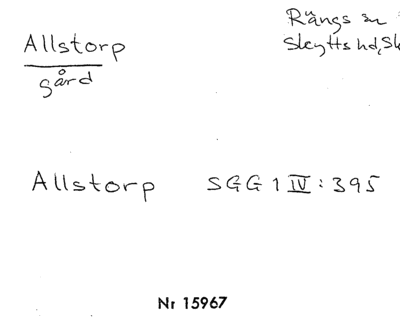 Allstorp
gård
Rängs sn
Skytts hd, Sk
Allstorp SGG 1 IV: 395
Nr 15967